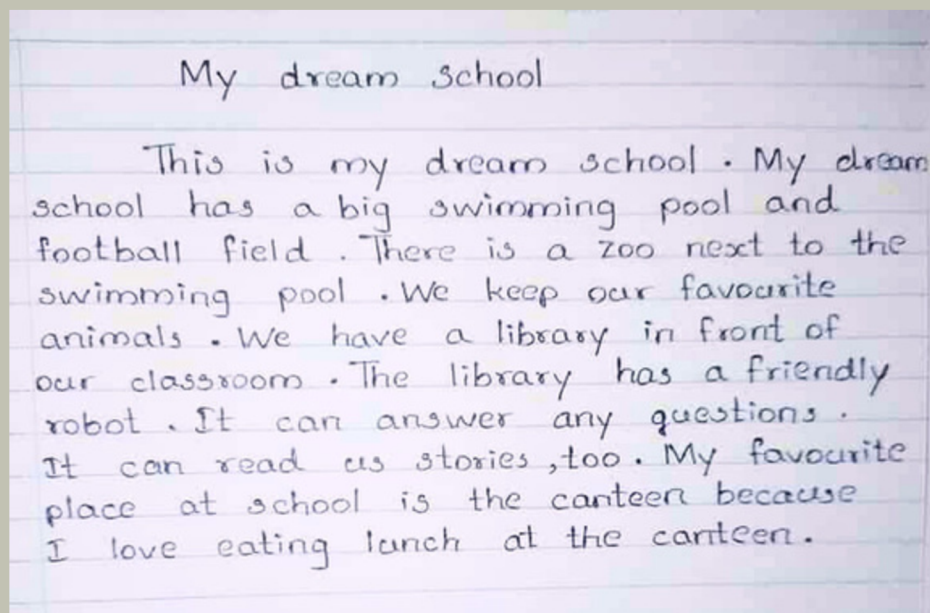 My dream school
This is my dream school. My dream
school has a big swimming pool and
football field. There is a zoo next to the
swimming pool. We keep our favourite
animals. We have a library in front of
our classroom. The library has a friendly
robot. It can answer any questions.
It can read us stories, too. My favourite
place at school is the canteen because
I love eating lunch at the canteen.